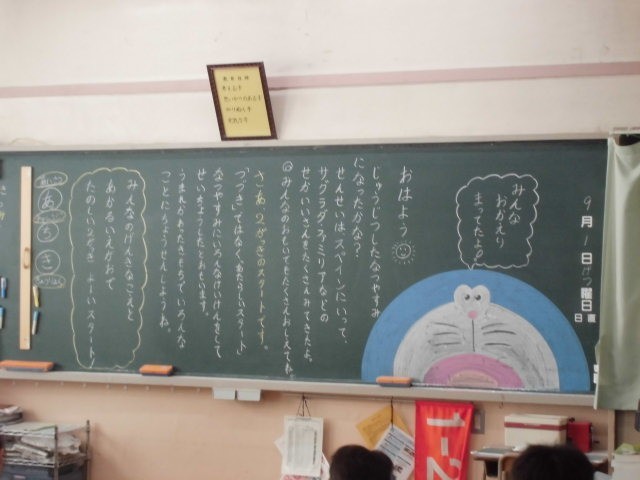 9月1日げつ曜日
日直
みんな
おかえり
まってたよ。
おはよう
じゅうじつしたなつやすみ
になったかな？
せんせいは、スペインにいって、
サグラダ・ファミリアなどの
せかいいさんをたくさんみてきたよ。
みんなのおもいでもたくさんおしえてね。
さあ、2がっきのスタートです。
「つづき」ではなく「あたらしいスタート」
なつやすみにいろんなけいけんをして
せいちょうしたとおもいます。
うまれかわったきもちでいろんな
ことにちょうせんしようね。
みんなのげんきなこえと
あかるいえがおで
たのしい2がっき よーいスタート！
あ
ち
さ
1-2